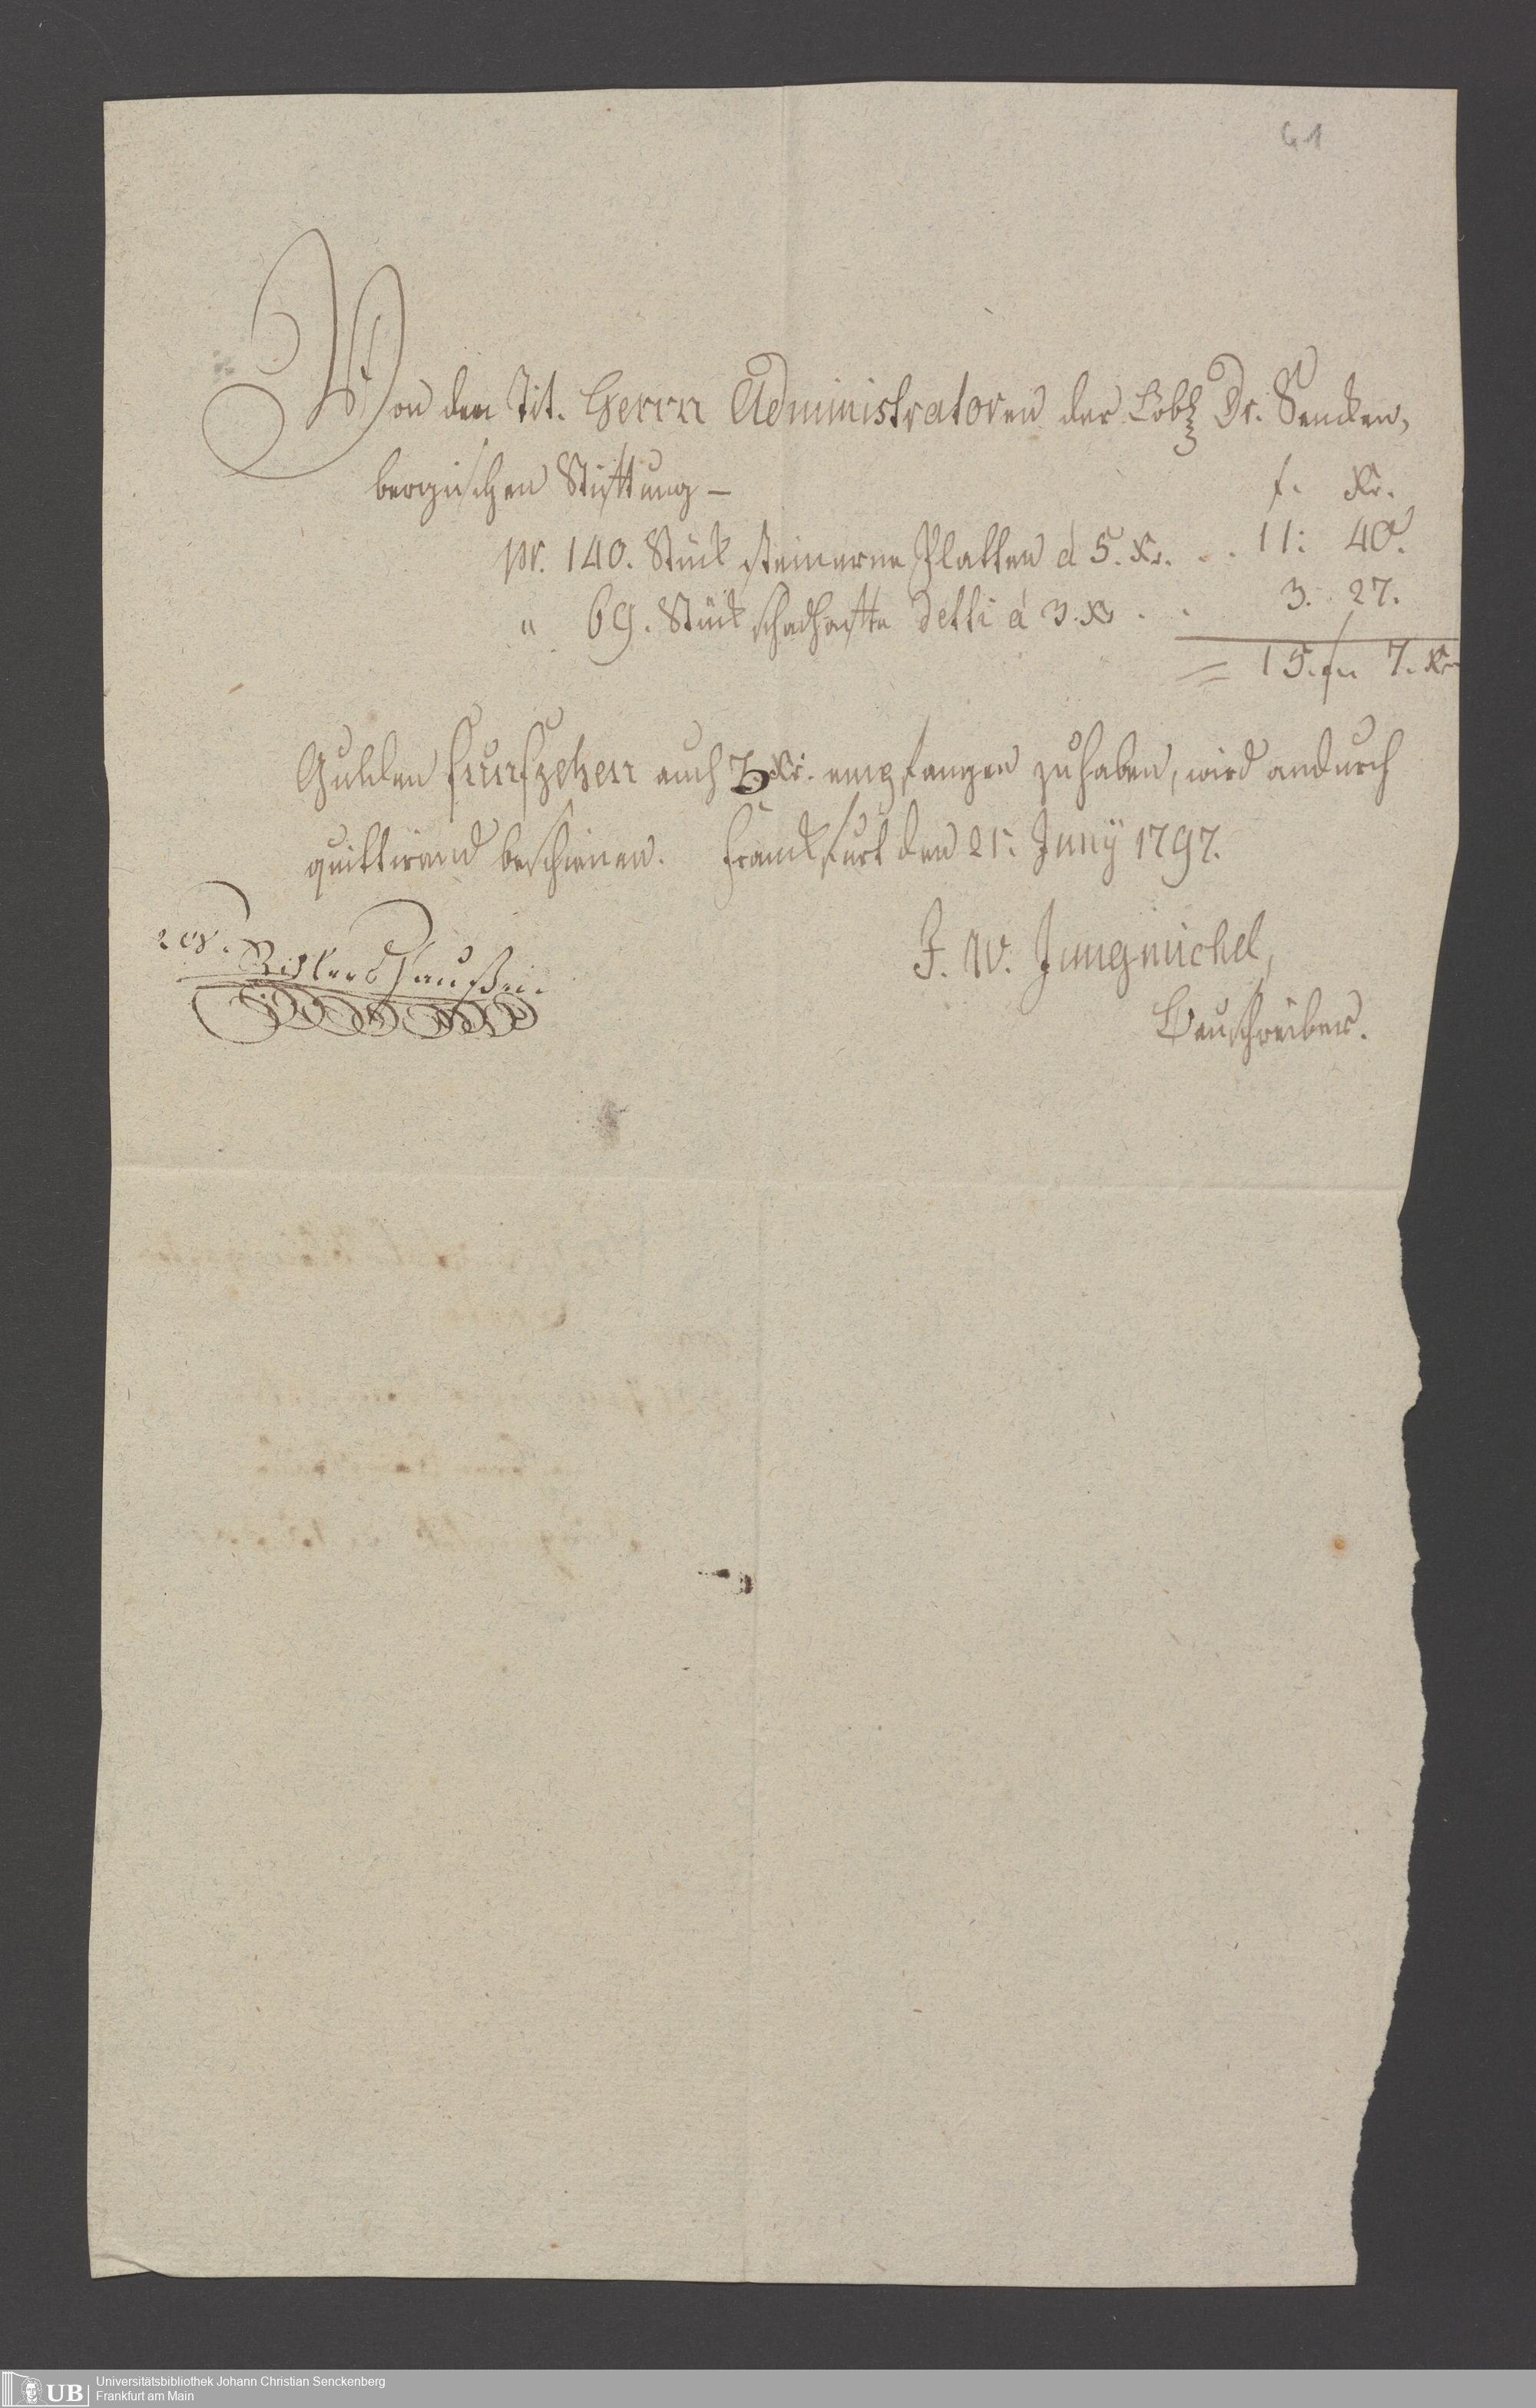 61
Von den Tit. Herrn Administratoren der Löbl. Dr. Sencken,
bergischen Stifttung –
f. Xr.
pr. 140. Stück steinerne Platten á 5. Xr. . . 11: 40.
" 69. Stück schadhaffte detti á 3. Xr . . 3. 27.
= 15. f. 7. Xr
Gulden funfzehen auch 7. Xr. empfangen zu haben, wird andurch
quittirend beschienen. Franckfurt den 21. Juny 1797.
J. W. Jungmichel,
Bauschreiber.
UB Universitätsbibliothek Johann Christian Senckenberg
Frankfurt am Main